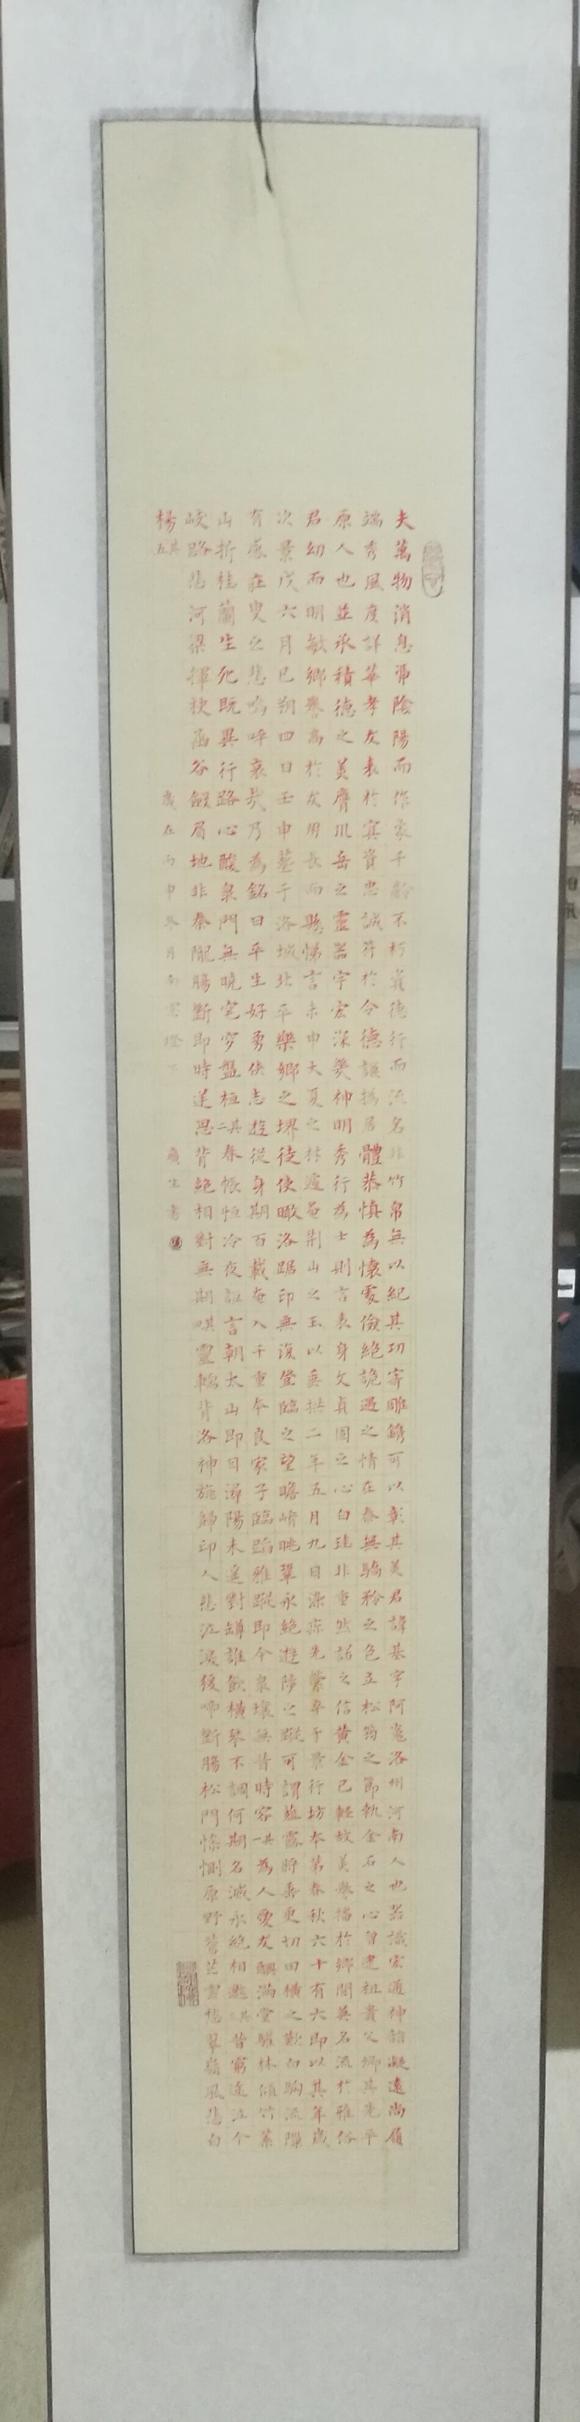 夫萬物消息帶陰陽而作家千齡不朽資德行而流名非竹帛無以紀其功寄雕鐫可以彰其美君諱基字阿嵬洛州河南人也器識宏通神韻凝遠尚眉
端秀風度詳華孝友表於冥資忠誠符於令德謙撝居體恭慎為懷愛儉絕詭遇之情在泰無驕矜之色立松筠之節執金石之心曾建祖貴父鄉其先平
原人也並承積德之美膺川岳之靈器宇宏深爽神明秀行為士則言表身文貞固之心白珪非重然諾之信黃金已輕故美譽播於鄉閭英名流於雅俗
君幼而明敏鄉譽高於友朋長而懸悌言未申大夏之材遽奄荊山之玉以垂拱二年五月九日染疾先繁卒于景行坊本第春秋六十有六即以其年歲
次景戌六月已朔四日壬申墓于洛城北平樂鄉之堺徒使瞰洛踞印無復登臨之望瞻崤眺鞏永絕遊陟之蹤可謂薤露將晞更切田橫之歎白駒流隟
有感莊叟之悲嗚呼哀哉乃為銘曰平生好勇俠志遊從身期百載奄入千重本良家子臨蹈雅蹤即今泉壤無昔時容其一為人愛友酬滿堂驩林傾竹葉
山折桂蘭生死既異行路心酸泉門無曉宅穸盤桓其二春帳恒冷夜誰言朝太山即目潯陽未遙對罇誰飲橫琴不調何期名滅永絕相邀其三昔窮途泣今
岐路悲河梁揮袂函谷斂眉地非秦隴腸斷即時送思背絕相對無期其四靈轜背洛神旐歸印人悲泣淚猨啼斷腸松門慘惻原野蒼茫雲愁翠嶺風悲白
楊其五
歲在丙申冬月南窗燈下
書